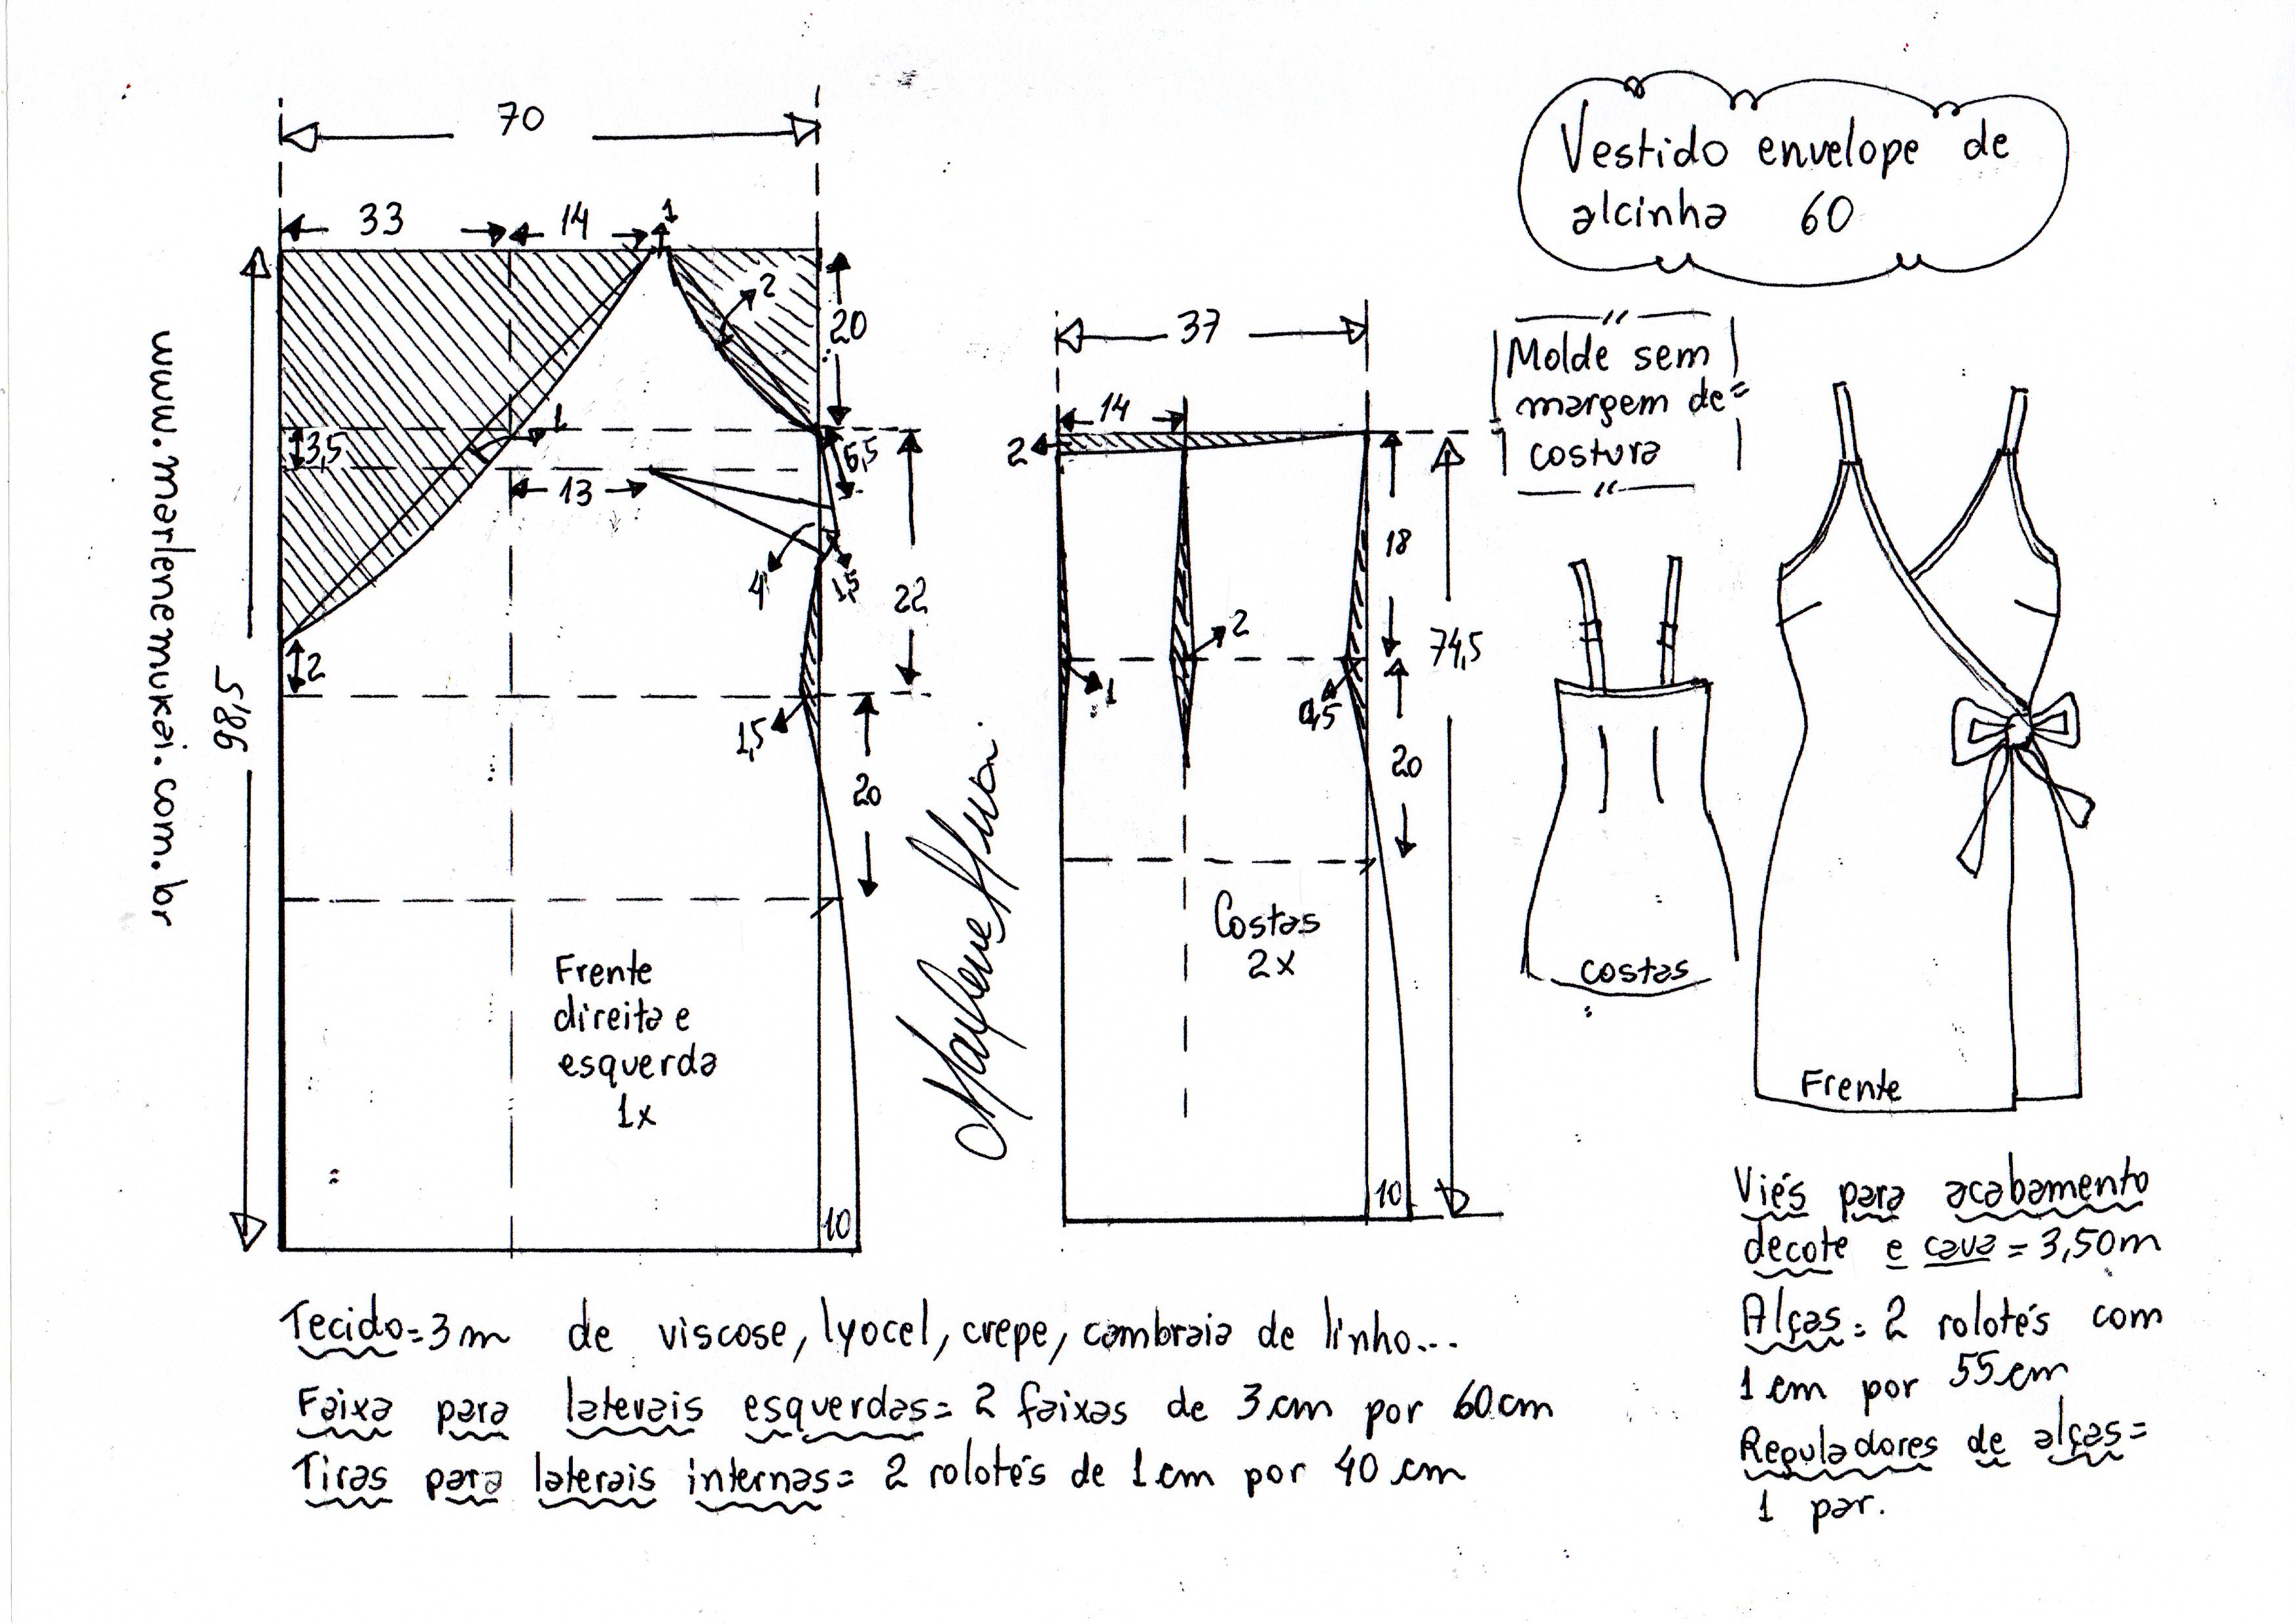 70
33
14
1
20
2
1
3,5
13
6,5
4
1,5
22
2
98,5
1,5
20
Frente
direita e
esquerda
1x
10
www.marlenemukai.com.br
37
14
2
18
74,5
2
1
20
Costas
2x
10
Vestido envelope de
alcinha 60
Molde sem
margem de
costura
costas
Frente
Tecido=3m de viscose, lyocel, crepe, cambraia de linho...
Faixa para laterais esquerdas= 2 faixas de 3cm por 60cm
Tiras para laterais internas= 2 rolotés de 1cm por 40 cm
Viés para acabamento
decote e cava = 3,50m
Alças= 2 rolotés com
1cm por 55cm
Reguladores de alças=
1 par.